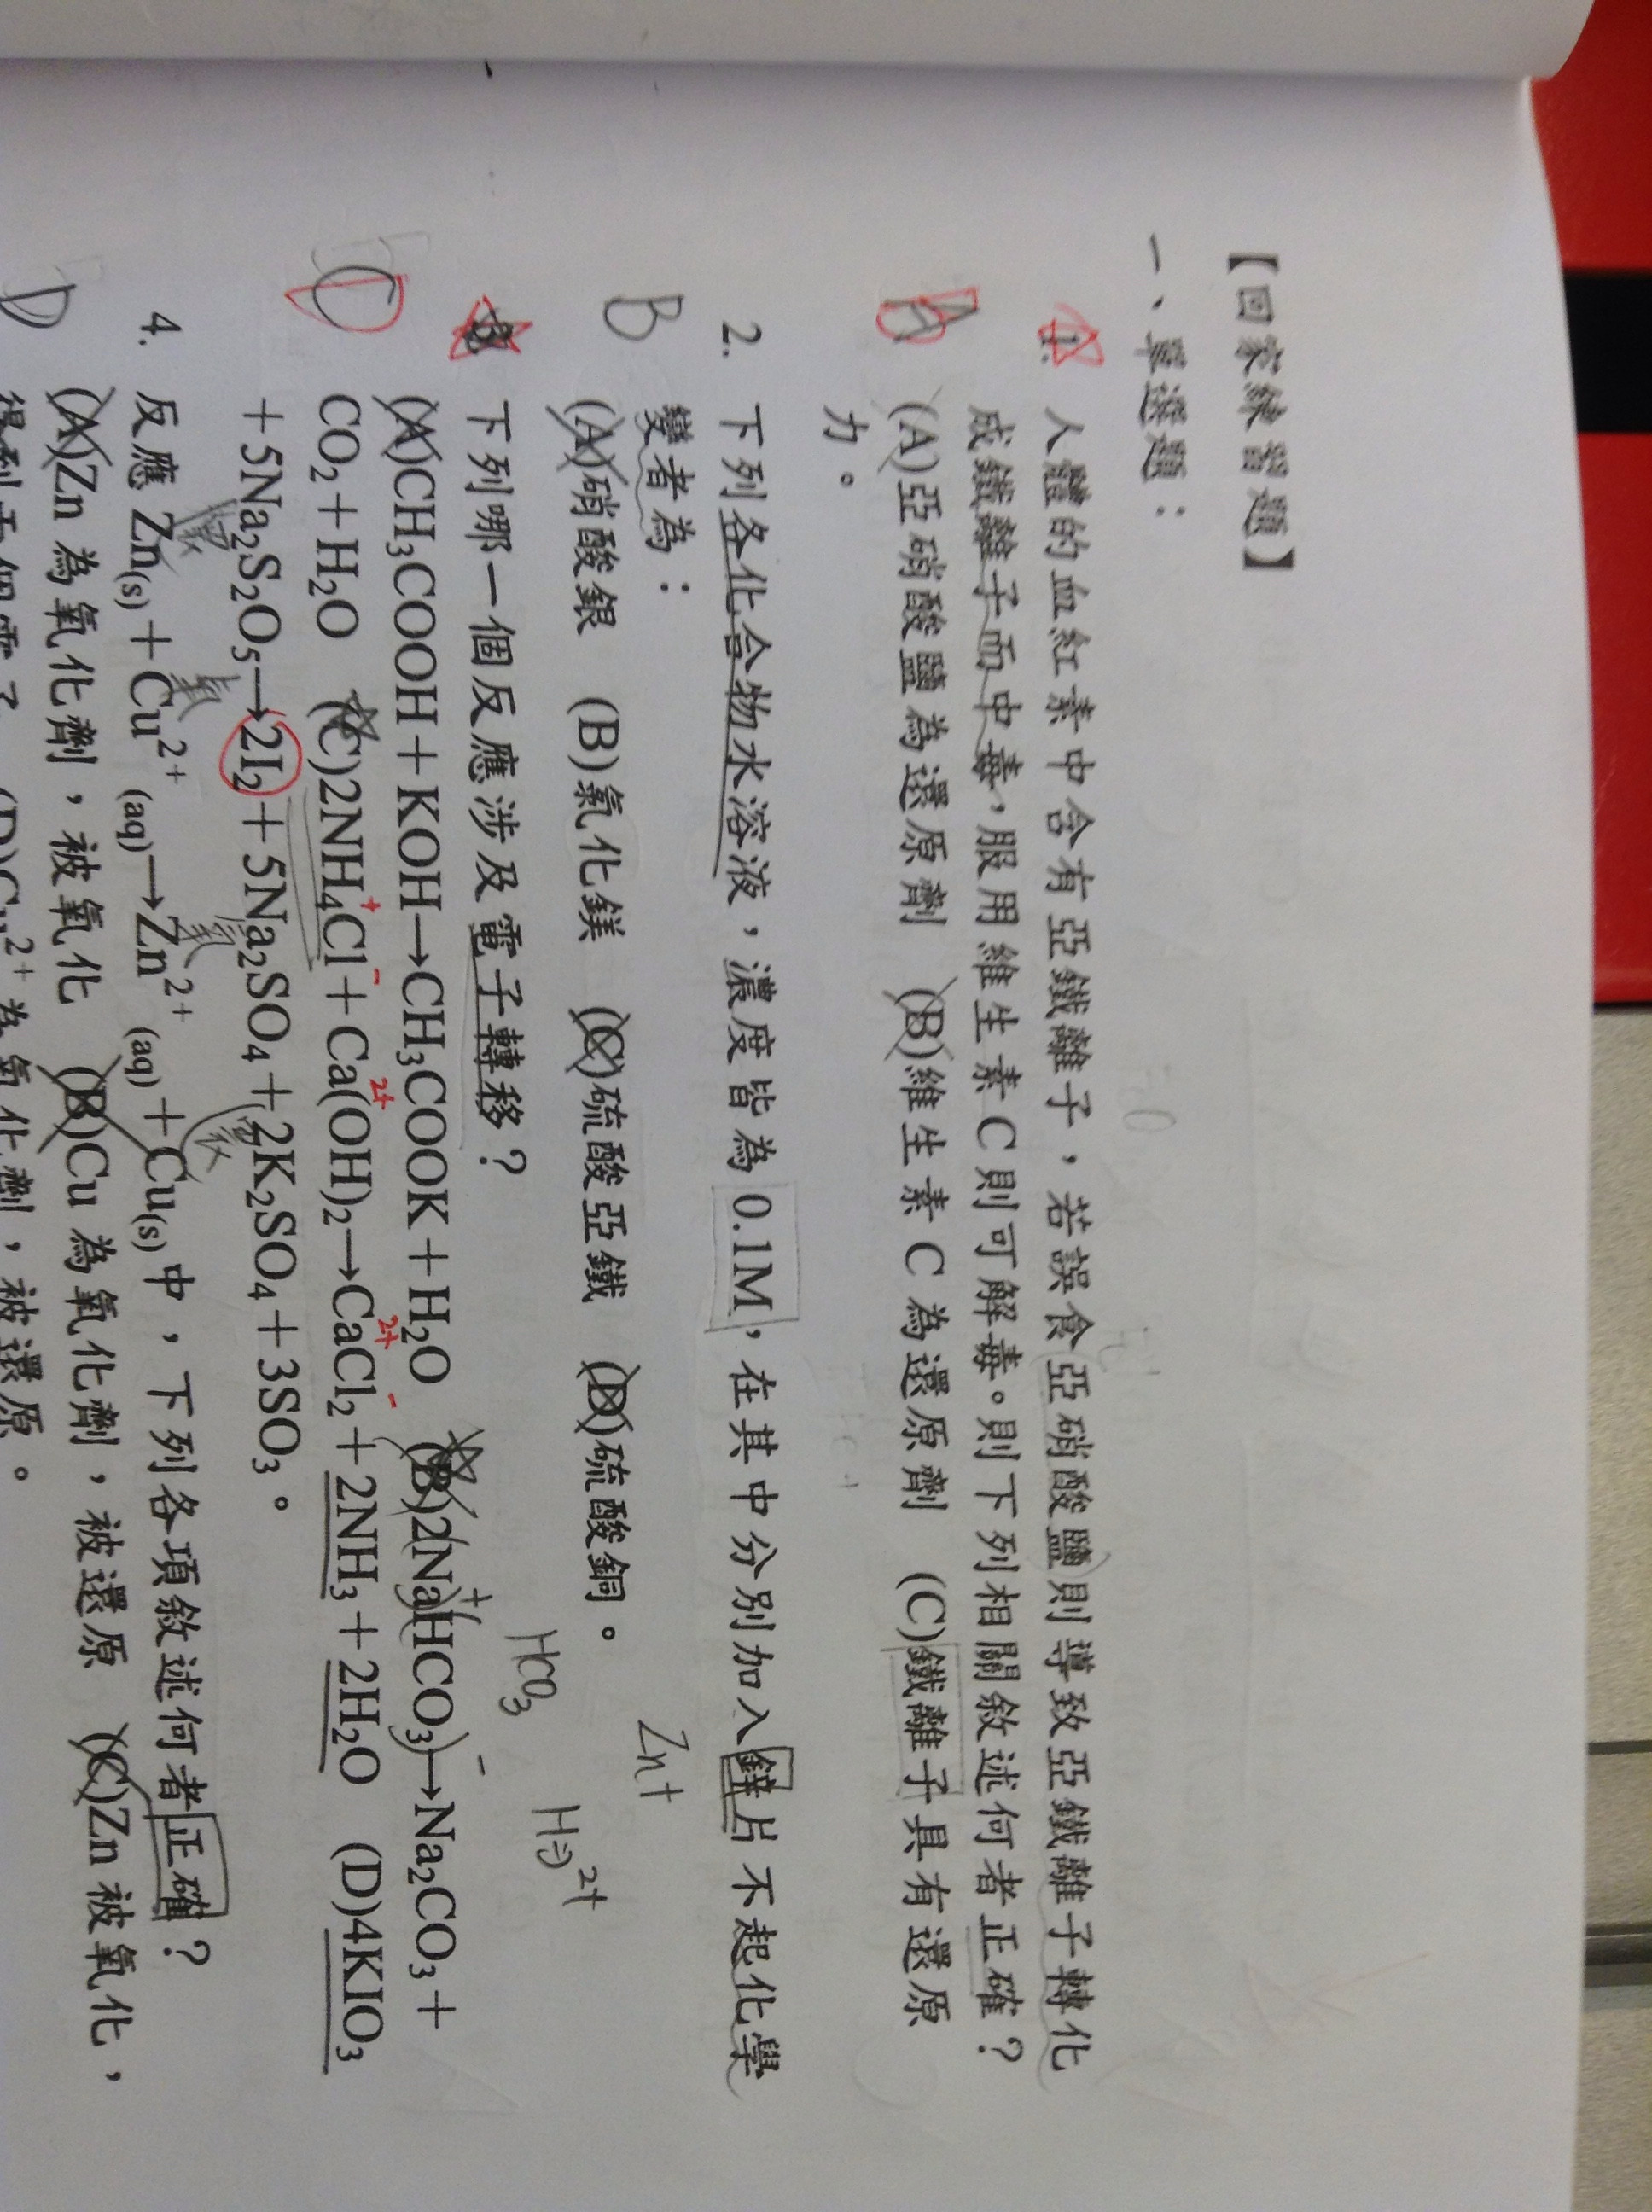 【回家練習題】
一、單選題：
1. 人體的血紅素中含有亞鐵離子，若誤食亞硝酸鹽則導致亞鐵離子轉化
成鐵離子而中毒，服用維生素C則可解毒。則下列相關敘述何者正確？
(A)亞硝酸鹽為還原劑 (B)維生素C為還原劑 (C)鐵離子具有還原
力。
2. 下列各化合物水溶液，濃度皆為0.1M，在其中分別加入鋅片不起化學
變者為：
Zn+
B
(A)硝酸銀 (B)氯化鎂 (C)硫酸亞鐵 (D)硫酸銅。
HCO3
3. 下列哪一個反應涉及電子轉移？
(A)CH₃COOH＋KOH→CH₃COOK＋H₂O (B)2NaHCO₃→Na₂CO₃＋
C
CO₂＋H₂O (C)2NH₄Cl＋Ca(OH)₂→CaCl₂＋2NH₃＋2H₂O (D)4KIO₃
＋5Na₂S₂O₅→2I₂＋5Na₂SO₄＋2K₂SO₄＋3SO₃。
4. 反應 Zn(s)＋Cu²⁺(aq)→Zn²⁺(aq)＋Cu(s)中，下列各項敘述何者正確？
D
(A)Zn為氧化劑，被氧化 (B)Cu為氧化劑，被還原 (C)Zn被氧化，
得到五個電子 (D)Cu²⁺為氧化劑，被還原。